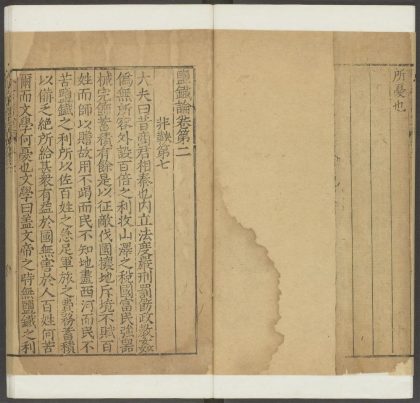 所憂也
鹽鐵論卷第二
非鞅第七
大夫曰昔商君相秦也内立法度嚴刑罰飭政教姦
僞無所容外設百倍之利收山澤之稅國富民強器
械完飾蓄積有餘是以征敵伐國攘地斥境不賦百
姓而師以贍故用不竭而民不知地盡西河而民不
苦鹽鐵之利所以佐百姓之急足軍旅之費務蓄積
以備乏絕所給甚衆有益於國無害於人百姓何苦
爾而文學何憂也文學曰蓋文帝之時無鹽鐵之利